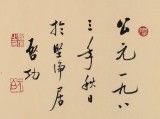 公元一九八
三年秋日
於坚净居
启功